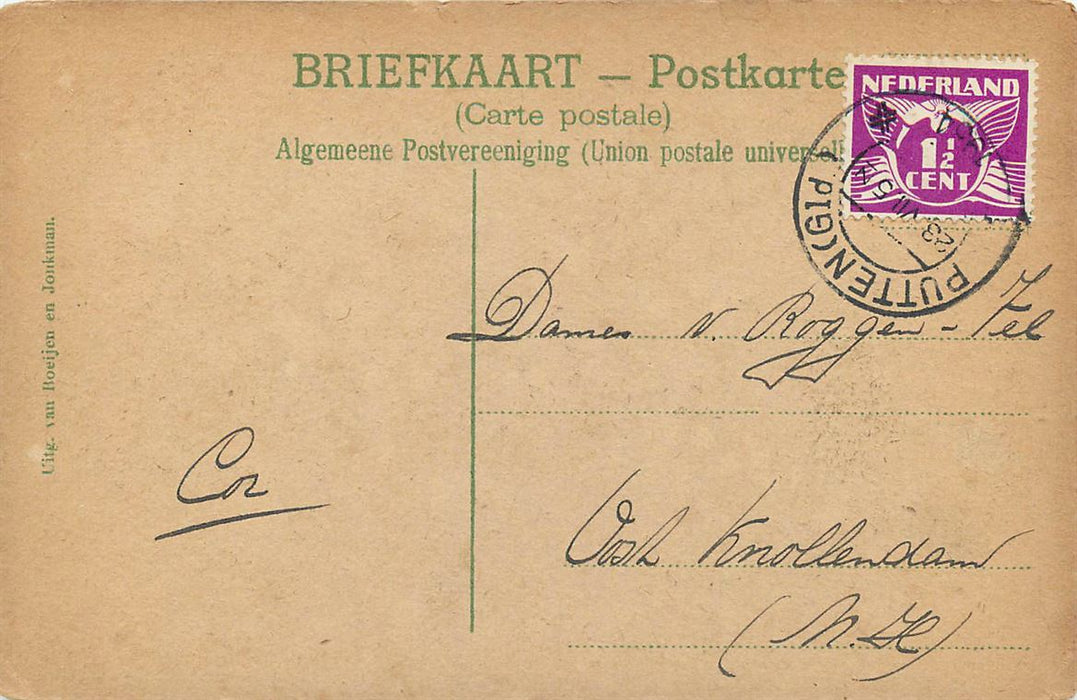 BRIEFKAART — Postkarte
(Carte postale)
Algemeene Postvereeniging (Union postale universell
NEDERLAND
1½
CENT
PUTTEN (Gld.)
23 VII 5
Uitg. van Boeijen en Jonkman.
Dames v. Roggen - Fel
Cor
Oost Knollendam
(N.H)